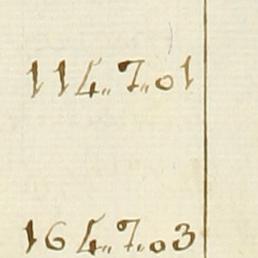 114,,7,,01
164,,7,,03